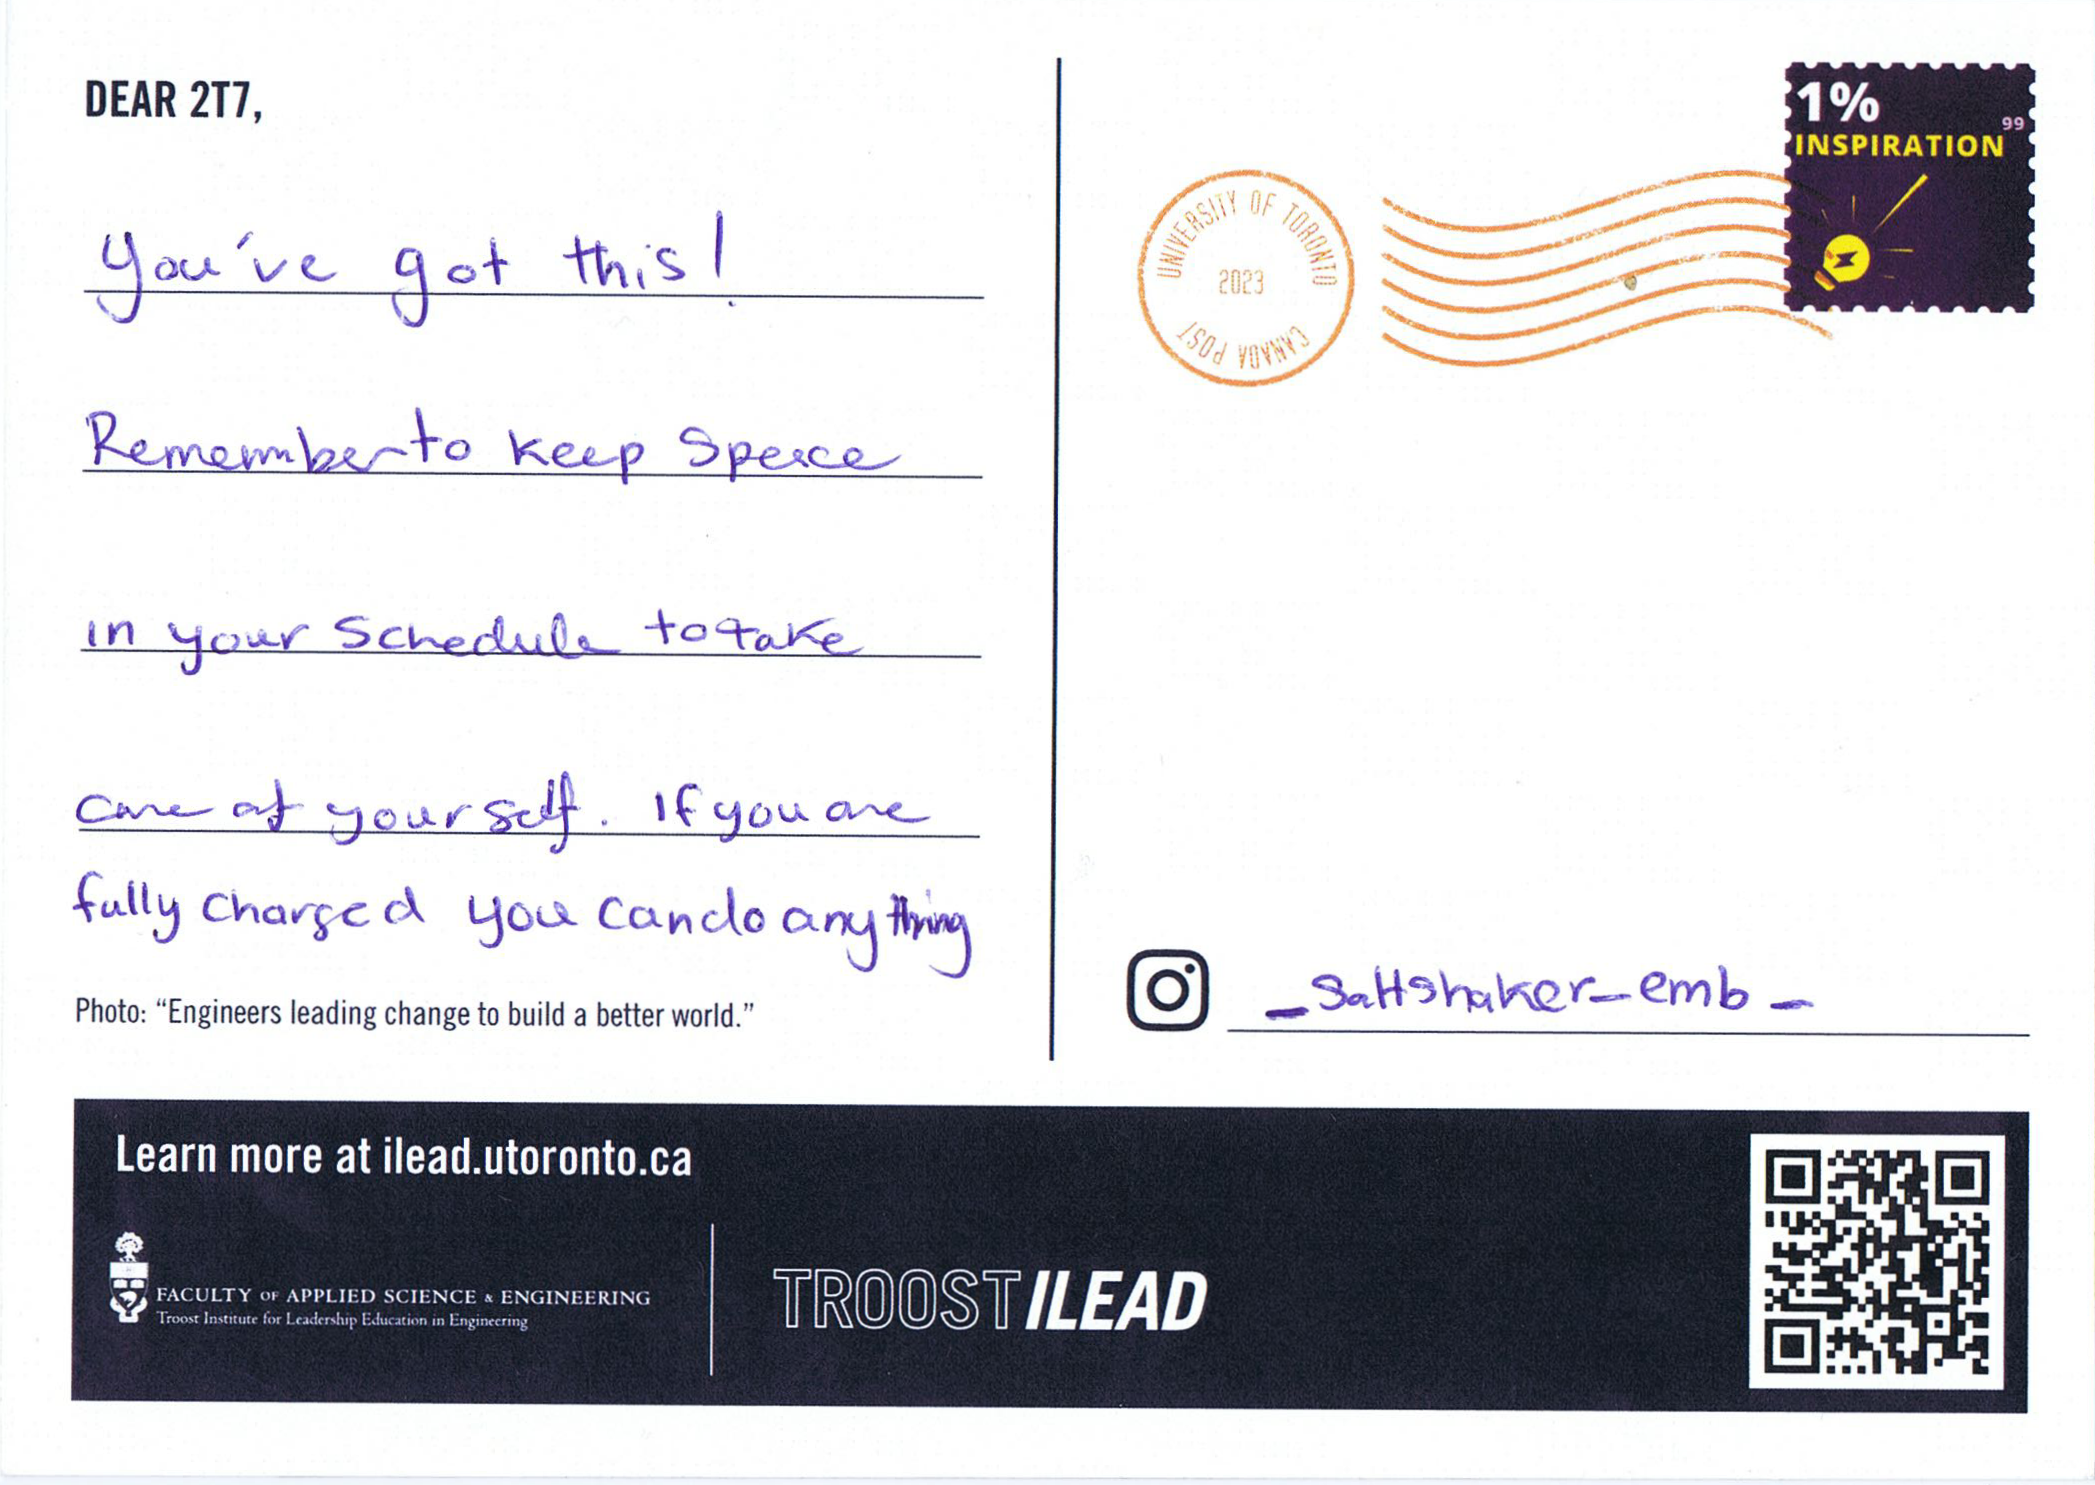 DEAR 2T7,
You've got this!
Remember to keep Speace
in your Schedule to take
care of yourself. If you are
fully charged you can do anything
Photo: “Engineers leading change to build a better world.”
UNIVERSITY OF TORONTO
2023
CANADA POST
1%
99
INSPIRATION
_saltshaker_emb_
Learn more at ilead.utoronto.ca
FACULTY OF APPLIED SCIENCE & ENGINEERING
Troost Institute for Leadership Education in Engineering
TROOST ILEAD